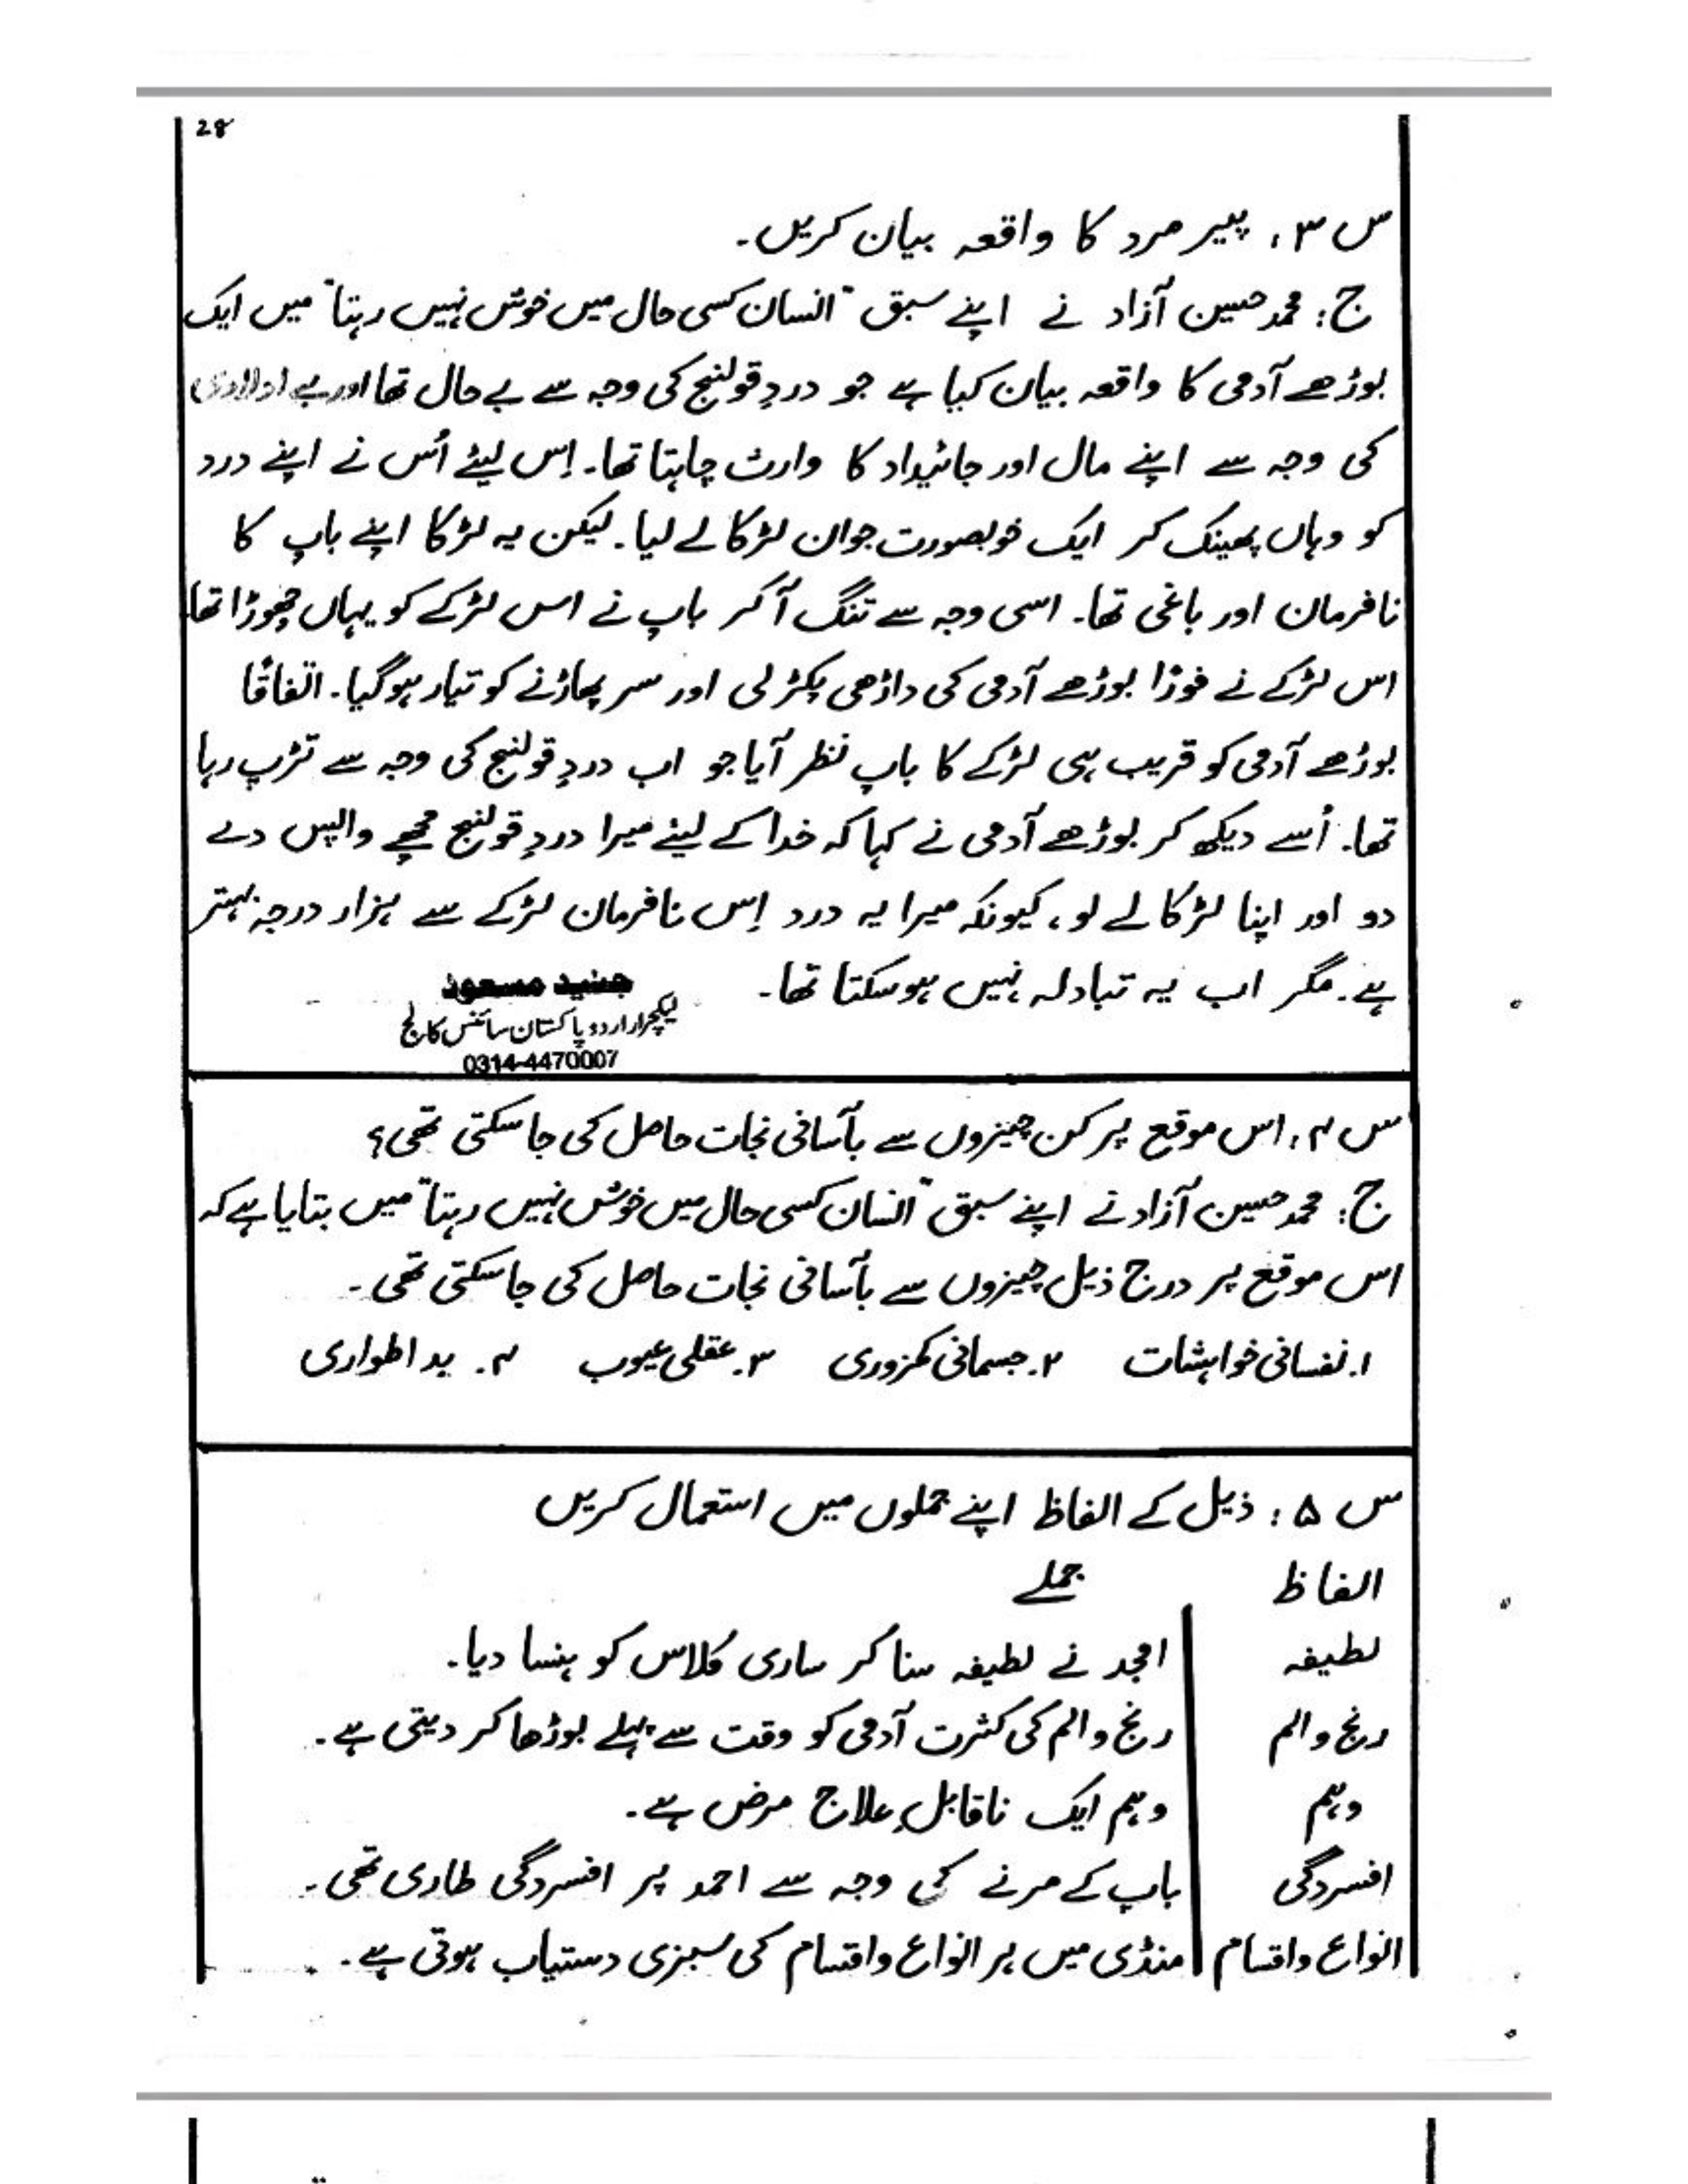 28
س ۳: پیر مرد کا واقعہ بیان کریں۔
ج: محمد حسین آزاد نے اپنے سبق "انسان کسی حال میں خوش نہیں رہتا" میں ایک
بوڑھے آدمی کا واقعہ بیان کیا ہے جو دردِ قولنج کی وجہ سے بے حال تھا اور بے اولادی
کی وجہ سے اپنے مال اور جائیداد کا وارث چاہتا تھا۔ اِس لیئے اُس نے اپنے درد
کو وہاں پھینک کر ایک خوبصورت جوان لڑکا لے لیا۔ لیکن یہ لڑکا اپنے باپ کا
نافرمان اور باغی تھا۔ اسی وجہ سے تنگ آ کر باپ نے اس لڑکے کو یہاں چھوڑا تھا
اس لڑکے نے فورًا بوڑھے آدمی کی داڑھی پکڑ لی اور سر پھاڑنے کو تیار ہوگیا۔ اتفاقًا
بوڑھے آدمی کو قریب ہی لڑکے کا باپ نظر آیا جو اب دردِ قولنج کی وجہ سے تڑپ رہا
تھا۔ اُسے دیکھ کر بوڑھے آدمی نے کہا کہ خدا کے لیئے میرا دردِ قولنج مجھے واپس دے
دو اور اپنا لڑکا لے لو، کیونکہ میرا یہ درد اِس نافرمان لڑکے سے ہزار درجہ بہتر
ہے۔ مگر اب یہ تبادلہ نہیں ہوسکتا تھا۔
جنید مسعود
لیکچرار اردو پاکستان سائنس کالج
0314-4470007
س ۴: اس موقع پر کن چیزوں سے بآسانی نجات حاصل کی جاسکتی تھی؟
ج: محمد حسین آزاد نے اپنے سبق "انسان کسی حال میں خوش نہیں رہتا" میں بتایا ہے کہ
اس موقع پر درج ذیل چیزوں سے بآسانی نجات حاصل کی جاسکتی تھی۔
۱. نفسانی خواہشات ۲. جسمانی کمزوری ۳. عقلی عیوب ۴. بد اطواری
س ۵: ذیل کے الفاظ اپنے جملوں میں استعمال کریں
الفاظ جملے
لطیفہ امجد نے لطیفہ سنا کر ساری کلاس کو ہنسا دیا۔
رنج و الم رنج و الم کی کثرت آدمی کو وقت سے پہلے بوڑھا کر دیتی ہے۔
وہم وہم ایک ناقابلِ علاج مرض ہے۔
افسردگی باپ کے مرنے کی وجہ سے احمد پر افسردگی طاری تھی۔
انواع و اقسام منڈی میں ہر انواع و اقسام کی سبزی دستیاب ہوتی ہے۔